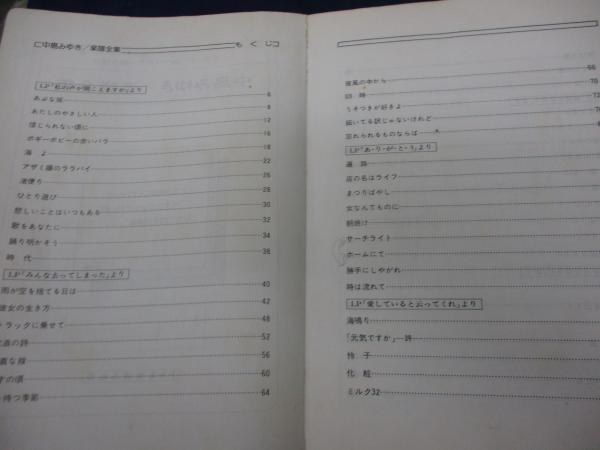 中島みゆき／楽譜全集 もくじ
LP「私の声が聞こえますか」より 6
あぶな坂 8
あたしのやさしい人 12
信じられない頃に 16
ボギーボビーの赤いバラ 18
海よ 22
アザミ嬢のララバイ 26
渚便り 28
ひとり遊び 30
悲しいことはいつもある 32
歌をあなたに 34
踊り明かそう 36
時代
LP「みんな去ってしまった」より
雨が空を捨てる日は 40
彼女の生き方 42
トラックに乗せて 48
の詩 52
な線 56
の頃 60
待つ季節 64
夜風の中から 66
時 70
うそつきが好きよ 72
妬いてる訳じゃないけれど
忘れられるものならば
LP「あ・り・が・と・う」より
遍路
店の名はライフ
まつりばやし
女なんてものに
朝焼け
サーチライト
ホームにて
勝手にしやがれ
時は流れて
LP「愛していると云ってくれ」より
海鳴り
「元気ですか」 詩
怜子
化粧
ミルク32